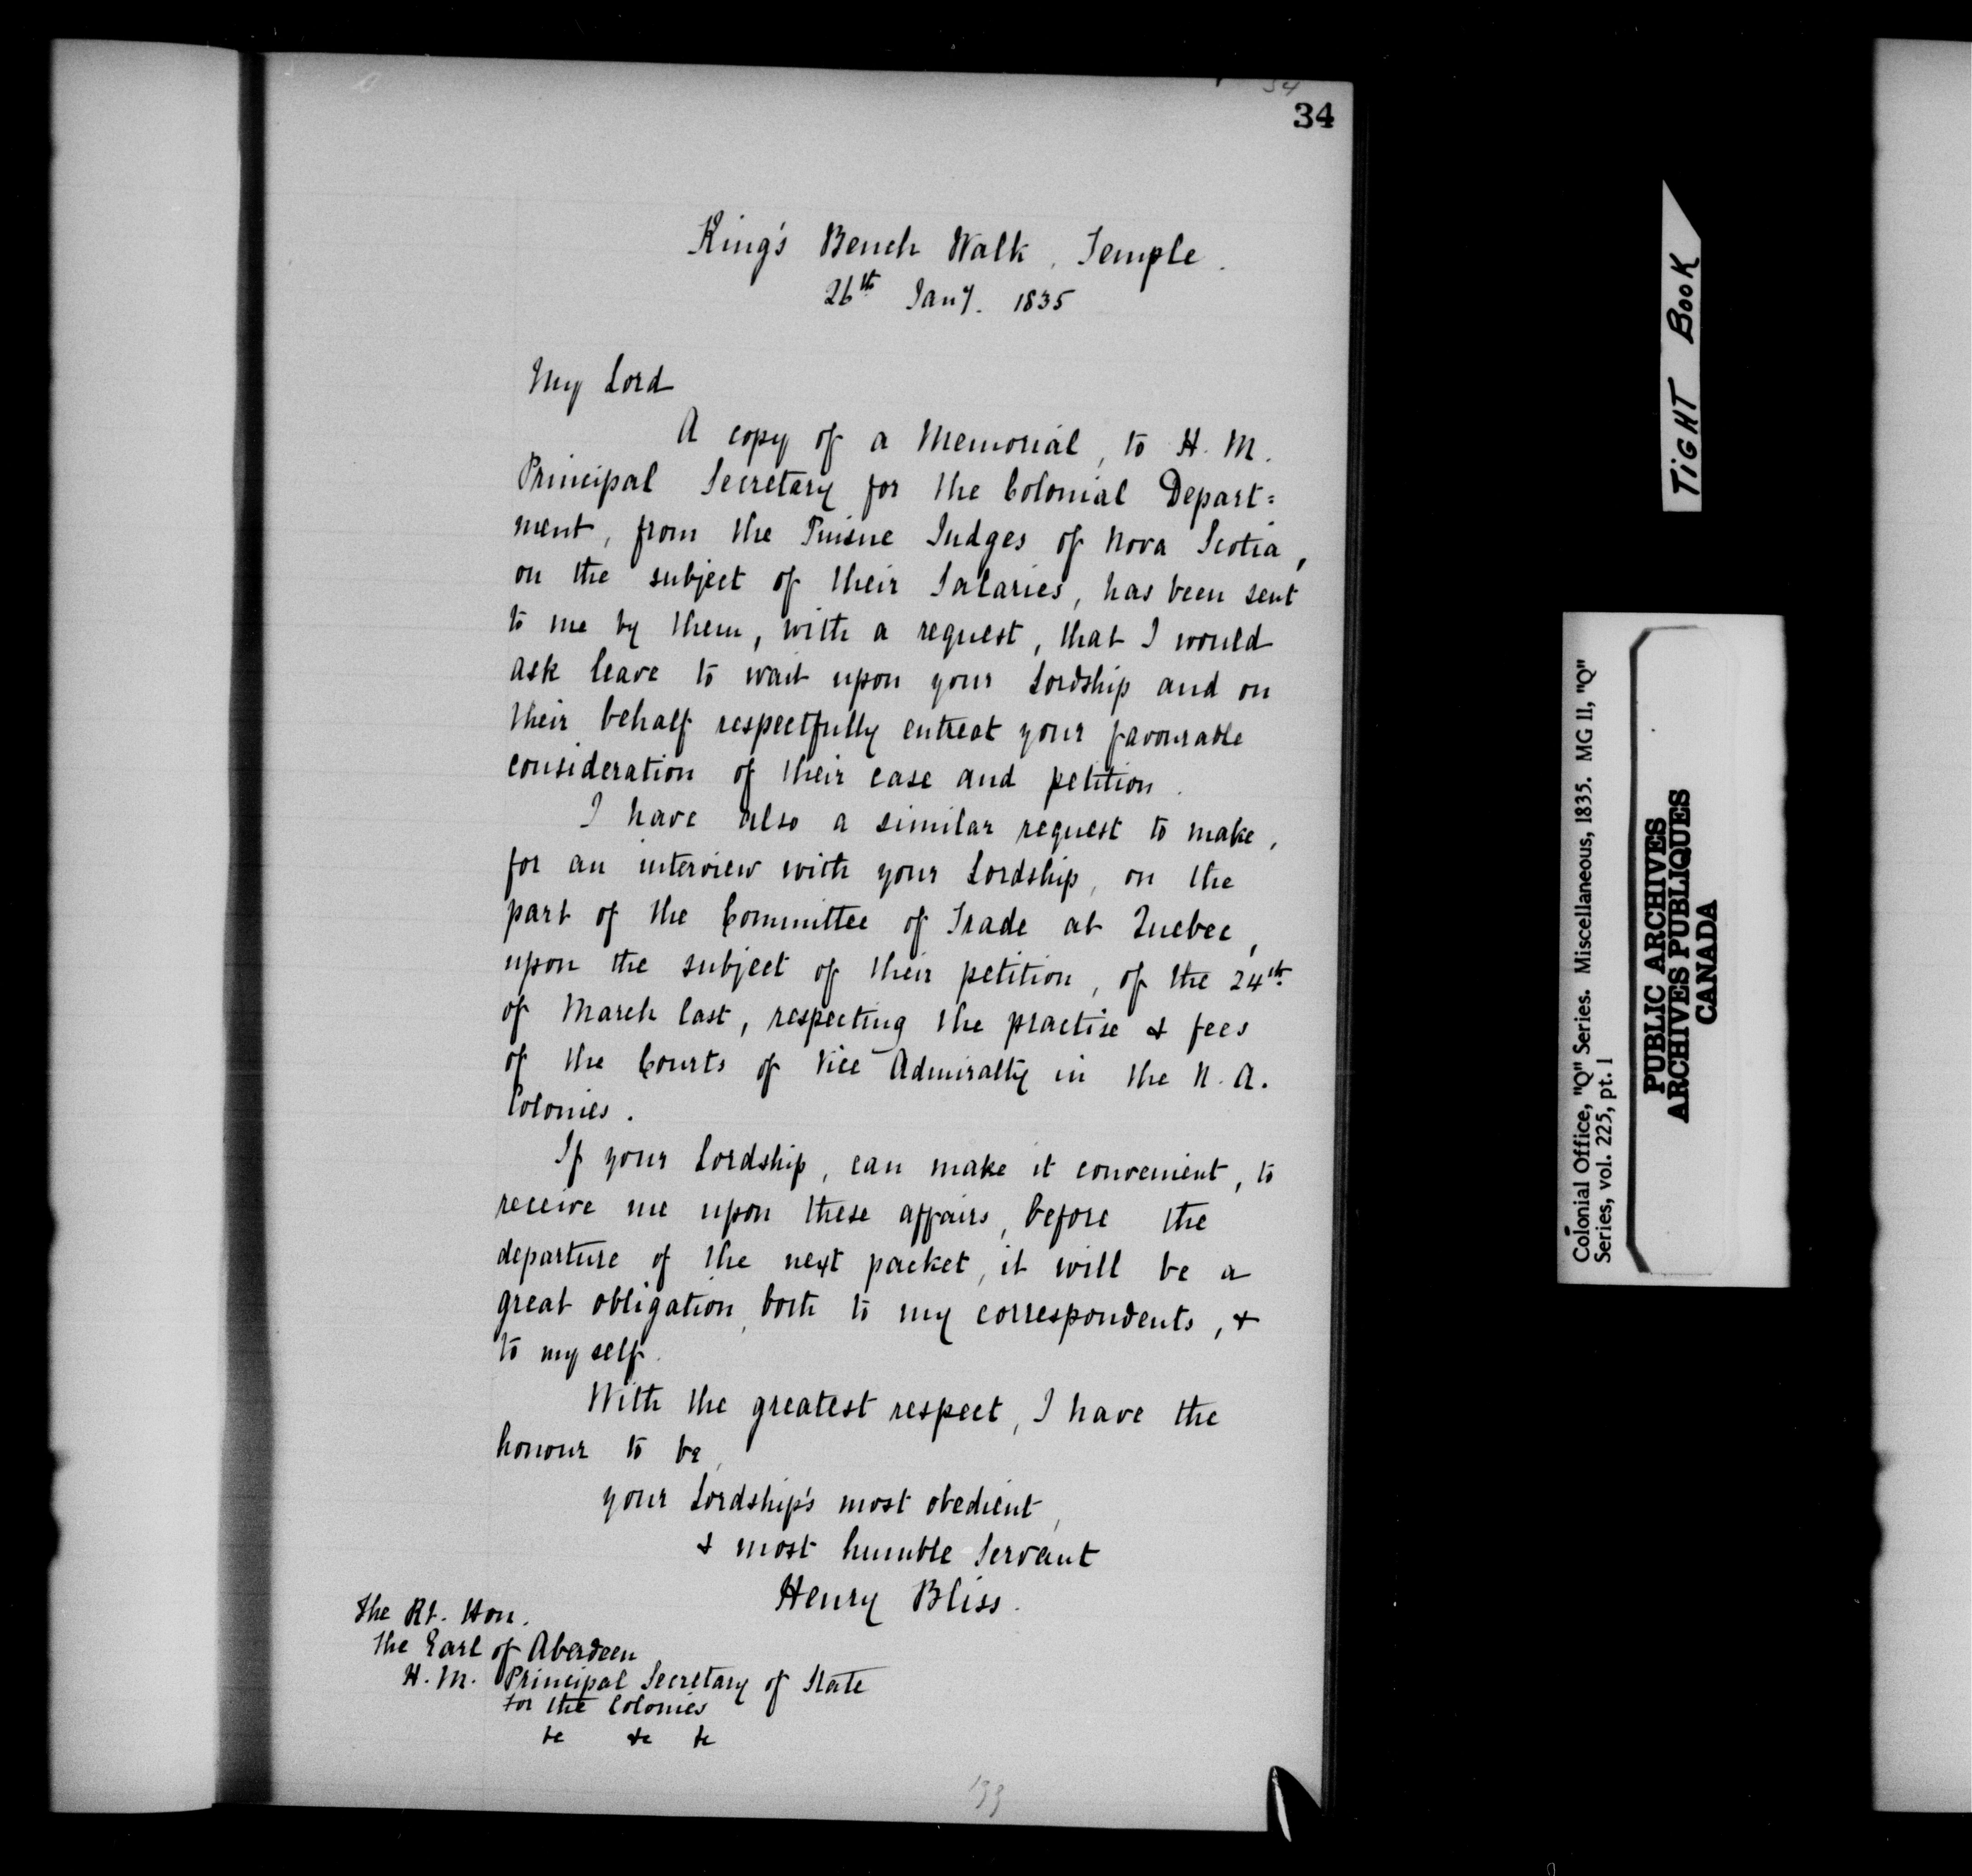 34
34
King's Bench Walk, Temple.
26th Jany. 1835
My Lord
A copy of a Memorial, to H. M.
Principal Secretary for the Colonial Depart=
ment, from the Puisne Judges of Nova Scotia,
on the subject of their Salaries, has been sent
to me by them, with a request, that I would
ask leave to wait upon your Lordship and on
their behalf respectfully entreat your favourable
consideration of their case and petition.
I have also a similar request to make,
for an interview with your Lordship, on the
part of the Committee of Trade at Quebec,
upon the subject of their petition, of the 24th
of March last, respecting the practise & fees
of the Courts of Vice Admiralty in the N. A.
Colonies.
If your Lordship, can make it convenient, to
receive me upon these affairs, before the
departure of the next packet, it will be a
great obligation, both to my correspondents, &
to my self.
With the greatest respect, I have the
honour to be,
your Lordship's most obedient,
& most humble Servant
Henry Bliss.
The Rt. Hon.
The Earl of Aberdeen
H. M. Principal Secretary of State
for the Colonies
&c &c &c
TIGHT BOOK
Colonial Office, "Q" Series. Miscellaneous, 1835. MG 11, "Q"
Series, vol. 225, pt. 1
PUBLIC ARCHIVES
ARCHIVES PUBLIQUES
CANADA